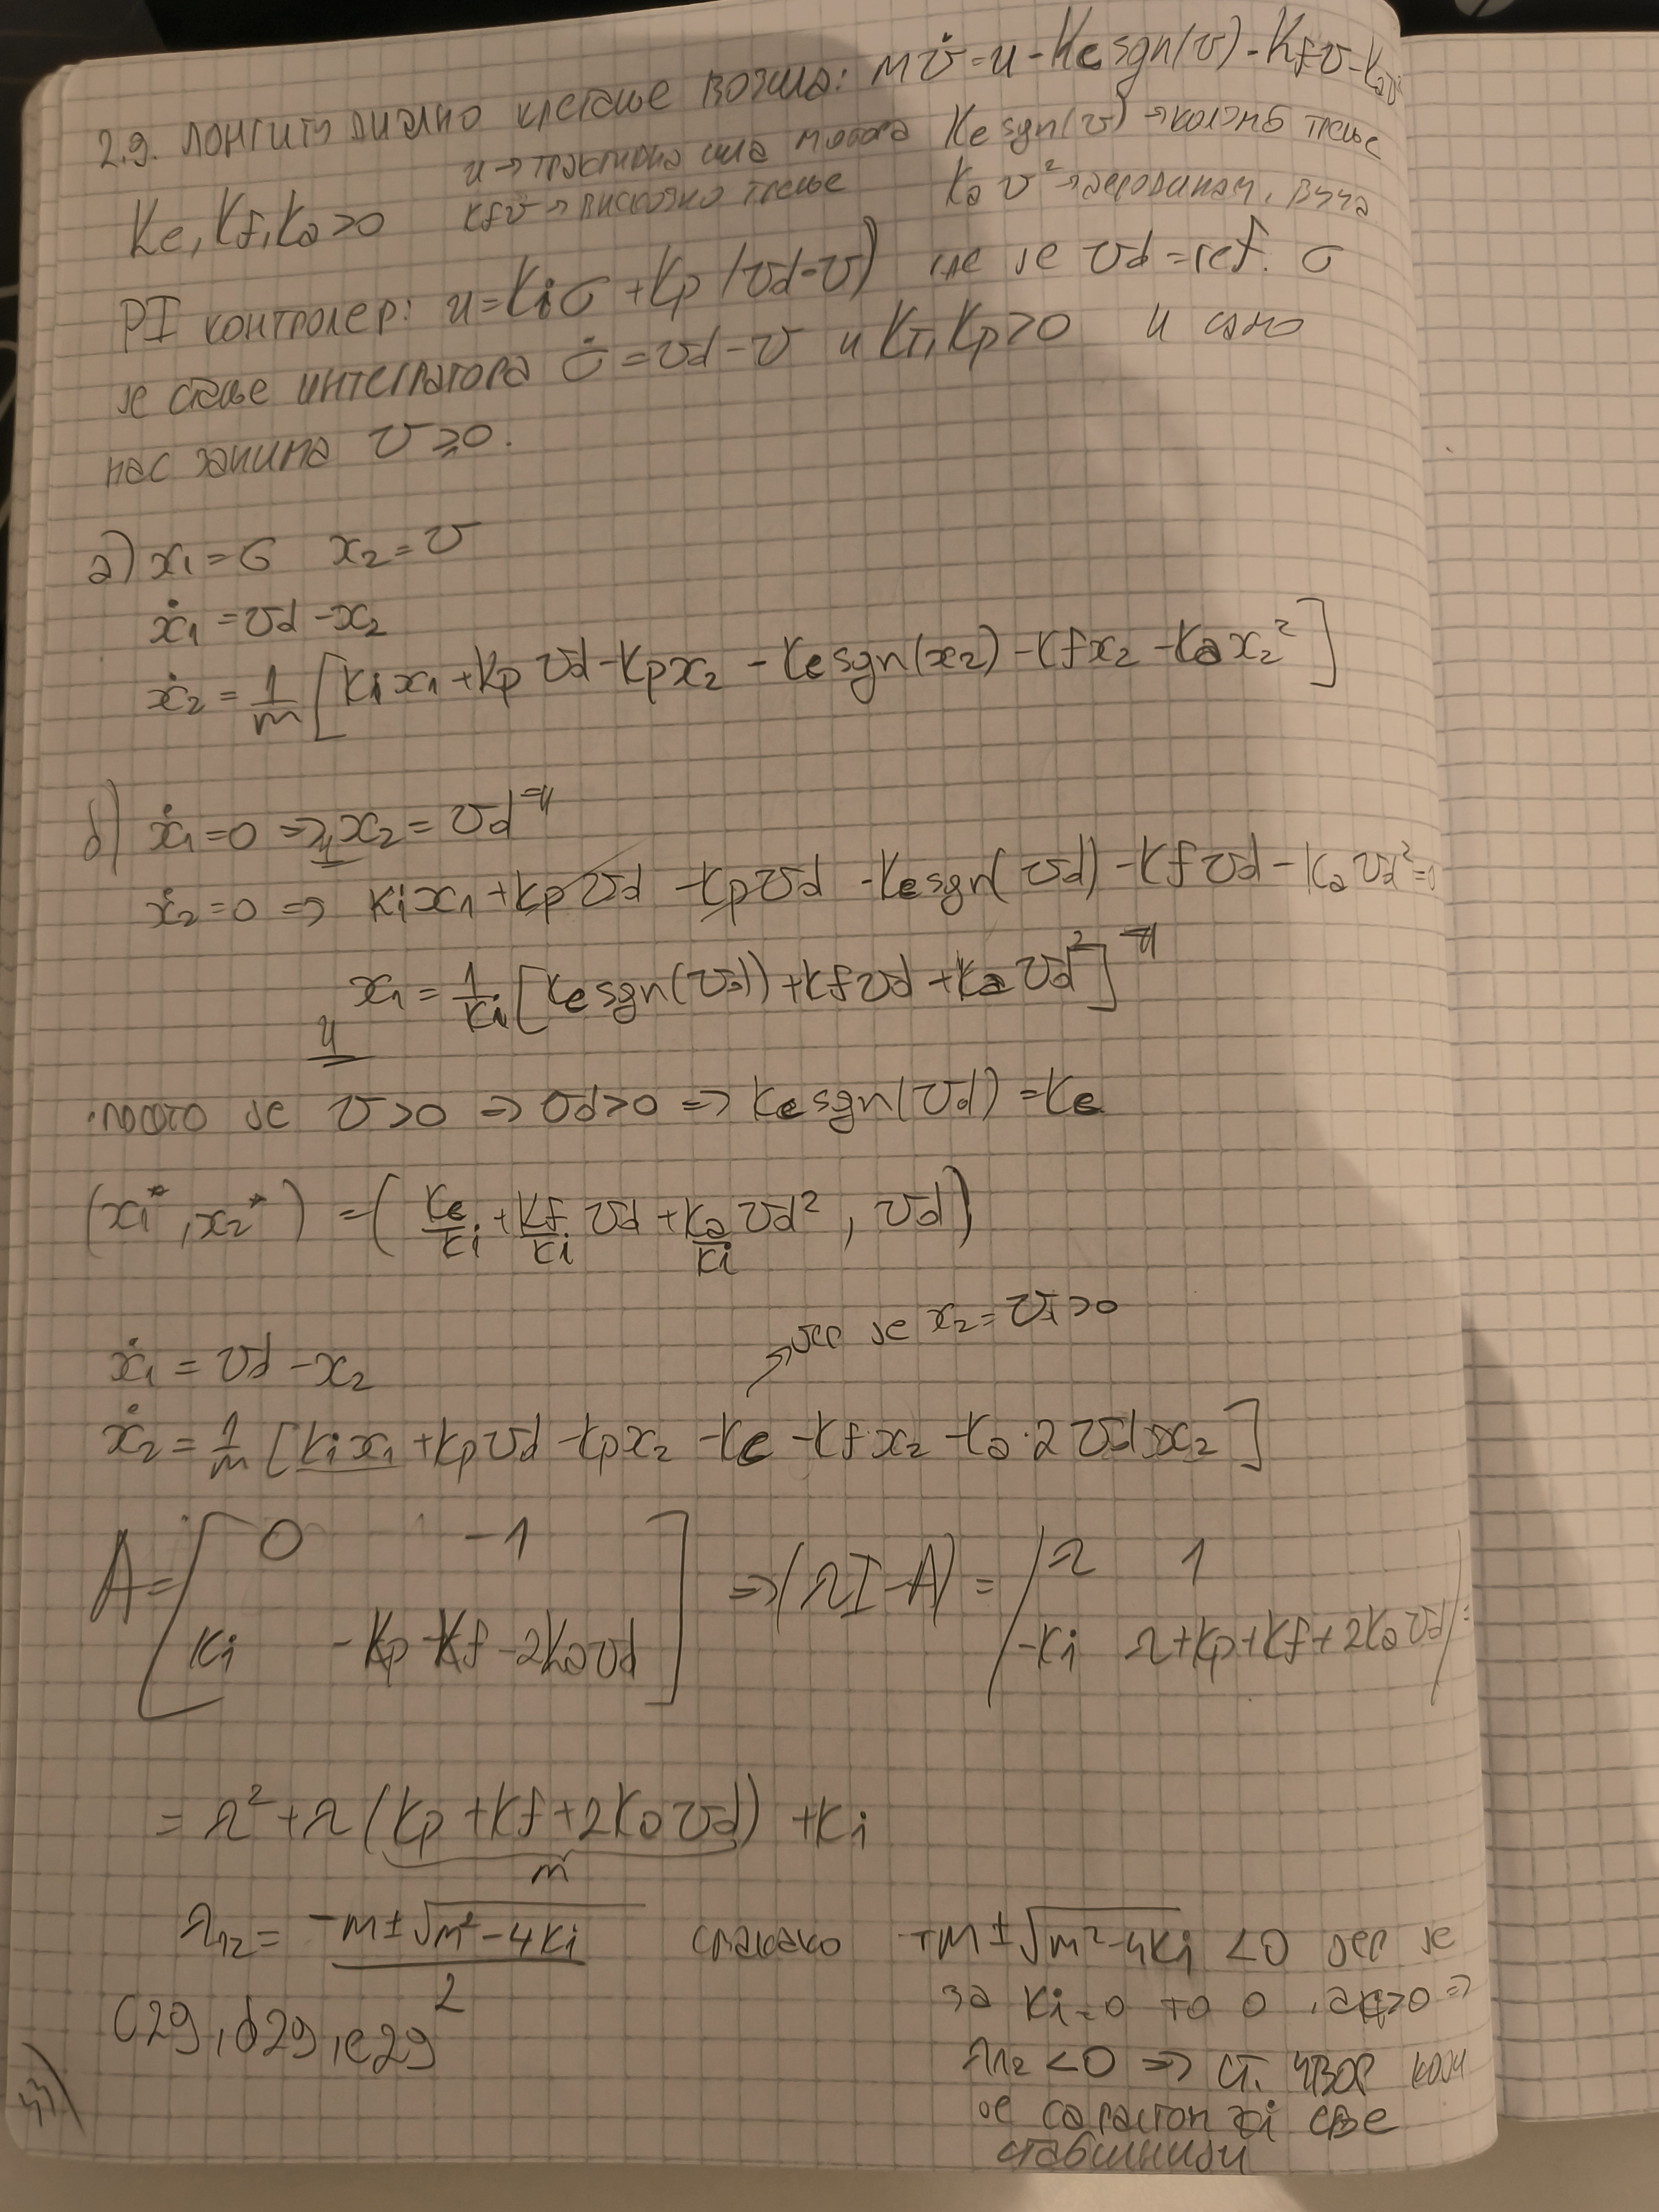 2.9. лонгитудинално кретање возила: m v̇ = u - Kc sgn(v) - Kf v - Ka v²
u → тракциона сила мотора Kc sgn(v) → колумб трење
Kc, Kf, Ka > 0 Kf v → вискозно трење Ka v² → аеродинам. вуча
PI контролер: u = Ki σ + Kp (vd - v) где је vd = ref. σ
је стање интегратора σ̇ = vd - v и KI, Kp > 0 и само
нас занима v ≥ 0.
а) x1 = σ x2 = v
ẋ1 = vd - x2
ẋ2 = 1/m [Ki x1 + Kp vd - Kp x2 - Kc sgn(x2) - Kf x2 - Ka x2²]
б) ẋ1 = 0 => x2 = vd
ẋ2 = 0 => Ki x1 + Kp vd - Kp vd - Kc sgn(vd) - Kf vd - Ka vd² = 0
x1 = 1/Ki [Kc sgn(vd) + Kf vd + Ka vd²]
· пошто је v > 0 => vd > 0 => Kc sgn(vd) = Kc
(x1*, x2*) = (Kc/Ki + Kf/Ki vd + Ka/Ki vd², vd)
јер је x2 = vd > 0
ẋ1 = vd - x2
ẋ2 = 1/m [Ki x1 + Kp vd - Kp x2 - Kc - Kf x2 - Ka · 2 vd x2]
A = [0 -1 => |λI - A| = |λ 1
Ki -Kp - Kf - 2Ka vd] |-Ki λ + Kp + Kf + 2Ka vd| =
= λ² + λ (Kp + Kf + 2Ka vd) + Ki
m
λ12 = (-m ± √(m² - 4Ki))/2 свакако -m ± √(m² - 4Ki) < 0 јер је
за Ki = 0 то 0, а Ki > 0 =>
c29, d29, e29
λ12 < 0 => ст. чвор који
се са растом Ki све
стабилнији